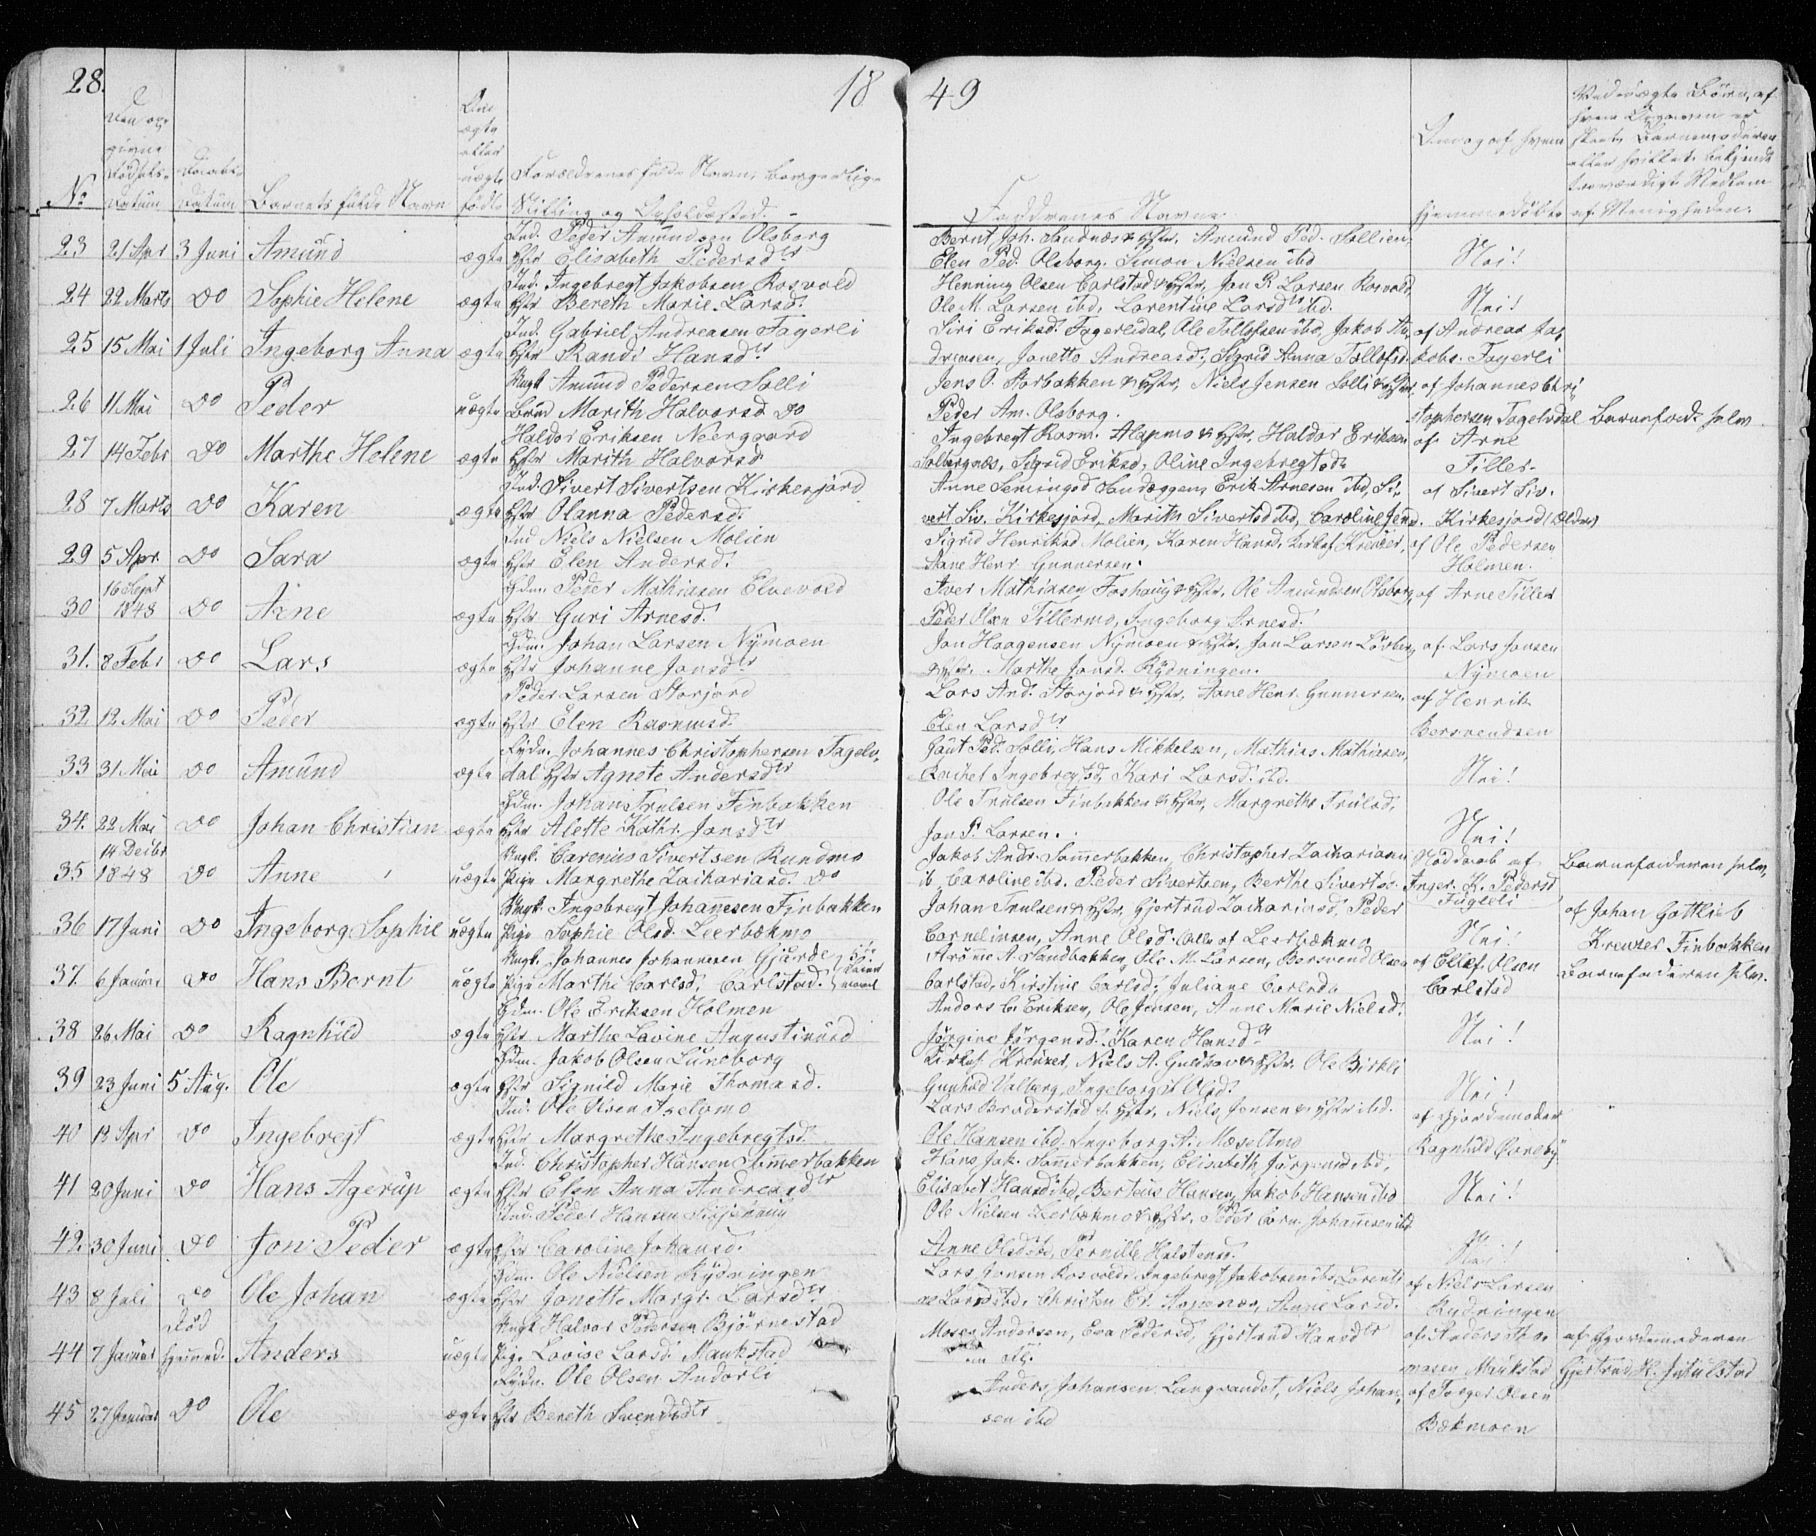 28.
18 49
No
Den op-
givne
Fødsels-
Datum
Daabs-
Datum
Barnets fulde Navn
Om
ægte
eller
uægte
født
Forældrenes fulde Navn, borgerlige
Stilling og Opholdssted.
Faddrenes Navne.
Om og af hvem
hjemmedøbt
Ved uægte Børn, af
hvem Opgaven er
skeet, Barnemoderen
eller hvilket bekjendt
troværdigt Medlem
af Menigheden.
23 21 Apr 3 Juni Amund ægte
Ind. Peder Amundsen Olsborg
Hstr Elisabeth Pedersdtr
Bernt Joh. Sandnæs & Hstr, Amund Ped. Sollien,
Elen Ped. Olsborg. Simon Nielsen ibd
Nei!
24 22 Marts Do Sophie Helene ægte
Ind. Ingebregt Jakobsen Rosvold
Hstr Bereth Marie Larsd.
Henning Olsen Carlstad & Hstr, Jon P. Larsen Rosvold,
Ole M. Larsen ibd, Lorentine Larsdtr ibd.
Nei!
25 15 Mai 1 Juli Ingeborg Anna ægte
Ind. Gabriel Andreasen Fagerli
Hstr Randi Hansdtr
Siri Eriksd. Fagerlidal, Ole Tollefsen ibd, Jakob An-
dreasen, Jonetta Andreasd., Sigrid Anna Tollefsd.
af Andreas Ja-
kobs. Fagerli
26 11 Mai Do Peder uægte
Ungk Amund Pedersen Solli
Marith Halvorsd Do
Jens O. Storbakken & Hstr, Niels Jensen Solli & Hstr,
Peder Am. Olsborg.
af Johannes Chri-
stophersen Tagelvdal
Barnefad. selv
27 14 Febr Do Marthe Helene ægte
Haldor Eriksen Neergaard
Hstr Marith Halvorsd
Ingebregt Rasm. Alapmo & Hstr, Haldor Eriksen
Solbergnæs, Sigrid Eriksd, Oline Ingebregtsd.
af Arne
Tiller.
28 7 Marts Do Karen ægte
Ind. Sivert Sivertsen Kirkesjord
Hstr Olanna Pedersd.
Anne Semingsd Sandeggen, Erik Arnesen ibd, Si-
vert Siv. Kirkesjord, Marith Sivertsd ibd, Caroline Jensd.
af Sivert Siv.
Kirkesjord (Ældre)
29 5 Apr Do Sara ægte
Ind Niels Nielsen Molien
Hstr Elen Andersd.
Sigrid Henriksd Molien, Karen Hansd, Kirkes. Kreutzer,
Hane Henr Gunnersen.
af Ole Pedersen
Holmen.
30 16 Sept 1848 Do Arne ægte
Gdm. Peder Mathiasen Elvevold
Hstr Guri Arnesd.
Iver Mathiasen Foshaug & Hstr, Ole Amundsen Olsborg,
Peder Olsen Tillermo, Ingeborg Arnesd.
af Arne Tiller
31. 8 Febr Do Lars ægte
Gdm. Johan Larsen Nymoen
Hstr Johanne Jonsdtr
Jon Haagensen Nymoen & Hstr, Jon Larsen Løvberg
& Hstr, Marthe Jonsd. Rydningen.
af Lars Jonsen
Nymoen
32. 12 Mai Do Peder ægte
Peder Larsen Storjord
Hstr Elen Rasmusd.
Lars And. Storjord & Hstr, Hane Henr Gunnersen,
Elen Larsdtr
af Henrik
Bersvendsen
33 31 Mai Do Amund ægte
Rydn. Johannes Christophersen Tagelv-
dal Hstr Agnete Andersdtr
Gaut Ped. Solli, Hans Mikkelsen, Mathias Mathiasen,
Rachel Ingebregtsd, Kari Larsd ibd.
Nei!
34. 22 Mai Do Johan Christian ægte
Gdm. Johan Trulsen Finbakken
Hstr Alette Kathr. Jonsdtr
Ole Trulsen Finbakken & Hstr, Margrethe Trulsd,
Jon P. Larsen.
Nei!
35 14 Decbr 1848 Do Anne uægte
Ungk. Carenius Sivertsen Rundmo
Pige Margrethe Zachariasd. Do
Jakob Andr. Sommerbakken, Christopher Zachariasen
ib, Caroline ibd. Peder Sivertsen, Berthe Sivertsd.
Nøddaab af
Inger K. Pedersd
Fugleli
Barnefaderen selv,
36 17 Juni Do Ingeborg Sophie uægte
Ungk. Ingebregt Johannesen Finbakken
Pige Sophie Olsd. Leerbækmo
Johan Trulsen & Hstr, Gjertrud Zachariasd, Peder
Cornelinsen, Anne Olsd. Alle af Leerbækmo
Nei!
af Johan Gottlieb
Kreutzer Finbakken
37. 6 Januar Do Hans Bernt uægte
Ungk. Johannes Johannesen Gjærde
Pige Marthe Carlsd, Carlstad.
A. Sandbakken, Ole M. Larsen, Bersvend Olsen
Carlstad, Kirstine Carlsd, Juliane Carlsd
af Ellef Olsen
Carlstad
Barnefaderen selv.
38 26 Mai Do Ragnhild ægte
Gdm. Ole Eriksen Holmen
Hstr Marthe Lavine Augustinusd
Anders C. Eriksen, Ole Jensen, Anne Marie Nielsd.
Jørgine Jørgensd. Karen Hansdtr
Nei!
39 23 Juni 5 Aug. Ole ægte
Gdm. Jakob Olsen Lundberg
Hstr Signild Marie Thomasd.
Kirkes. Kreutzer, Niels A. Guldhav & Hstr. Ole Birkli
Gunhild Valberg, Ingeborg Olsd.
Nei!
40 13 Apr Do Ingebregt ægte
Ind. Ole Olsen
Hstr Margrethe Ingebregtsd.
Lars Broderstad & Hstr, Niels Jensen & Hstr ibd.
Ole Hansen ibd. Ingeborg A. Moseltmo
af Gjordemoder
Ragnhild
41 20 Juni Do Hans Agerup ægte
Ind. Christopher Hansen Sommerbakken
Hstr Elen Anna Andreasdtr
Hans Jak. Sommerbakken, Elisabeth Jørgensd ibd,
Elisabet Hansd ibd, Berteus Hansen, Jakob Hansen ibd
Nei!
42. 30 Juni Do Jon Peder ægte
Ind. Peder Hansen
Hstr Caroline Johansd.
Ole Nielsen Leerbækmo & Hstr, Peder Corn. Johannesen ibd
Anne Olsd ibd, Pernille Halstensd.
Nei!
43 8 Juli Do Ole Johan ægte
Gdm. Ole Nielsen Rydningen
Hstr Jonette Margr. Larsdtr
Lars Jonsen Rosvold, Ingebregt Jakobsen ibd, Lorenti-
ne Larsd ibd, Christen Er. Aspenes, Anne Larsd.
af Niels Larsen
Rydningen
44 7 Januar Død hjemmed. Anders uægte
Ungk Halvor Pedersen Bjørnestad
Pige Lovise Larsd. Maukstad
Moses Andersen, Eva Pedersd, Gjertrud Hansdtr
af Anders Tho-
masen Maukstad
af Gjordemoderen
Gjertrud H.
45 27 Januar Do Ole ægte
Rydn. Ole Olsen Andorli
Hstr Bereth Svendsdtr
Anders Johansen Langvandet, Niels Johan-
sen ibd
af Torger Olsen
Bækmoen